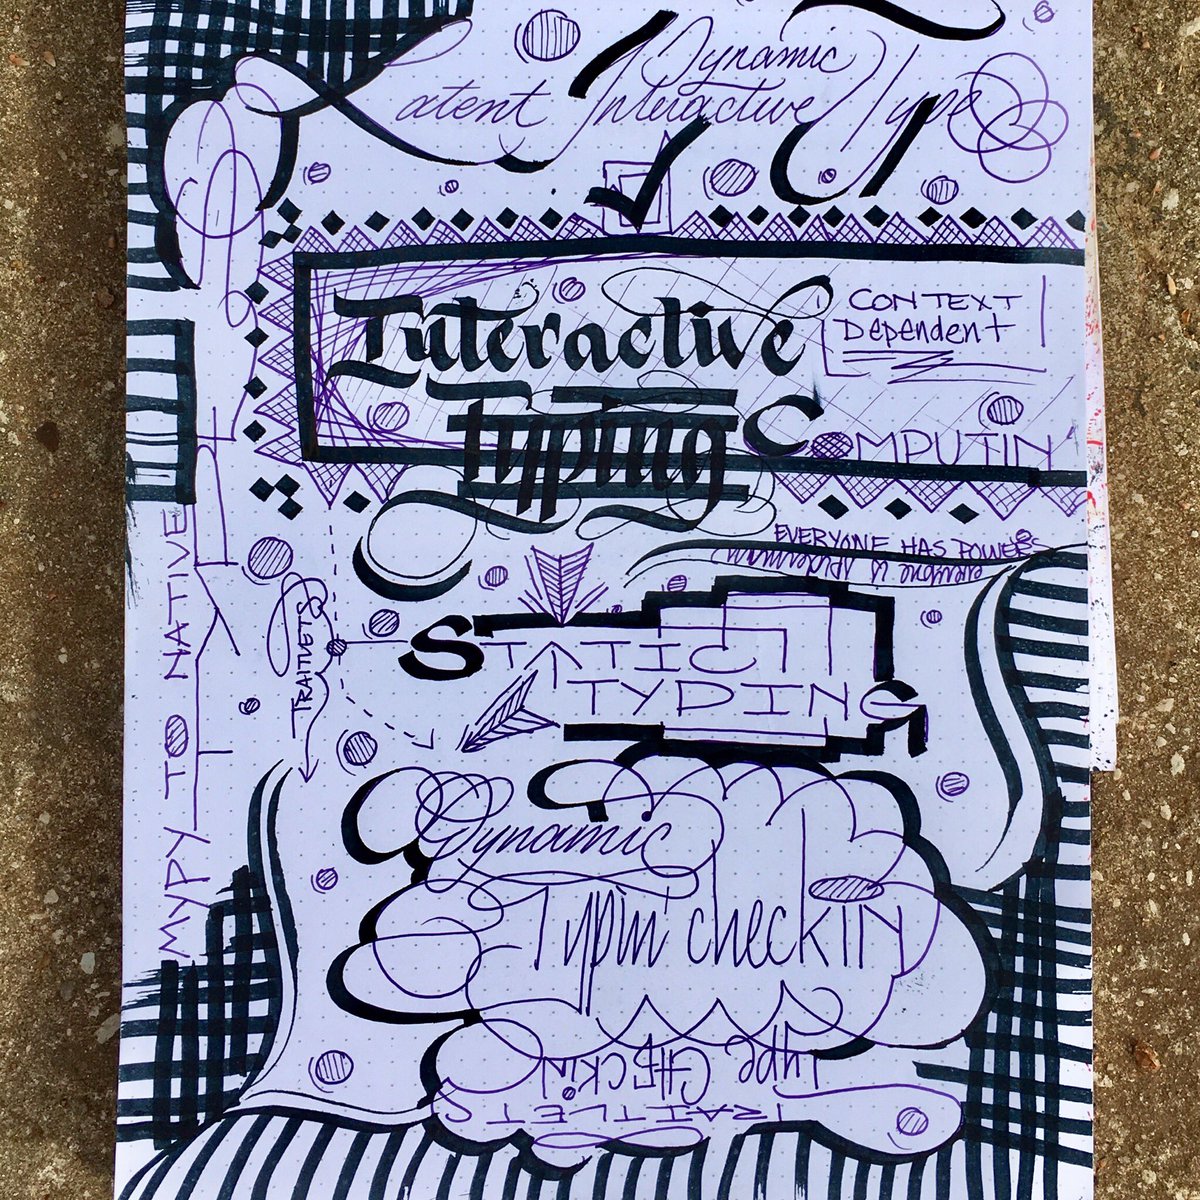 Dynamic
Latent Interactive Type
Interactive
Typing
CONTEXT
Dependent
COMPUTIN
EVERYONE HAS POWERS
everyone is
MYPY TO NATIVE
TRAITLETS
STATIC
TYPING
Dynamic
Typin' checkIN
Type CHECkiN
TRAITLETS